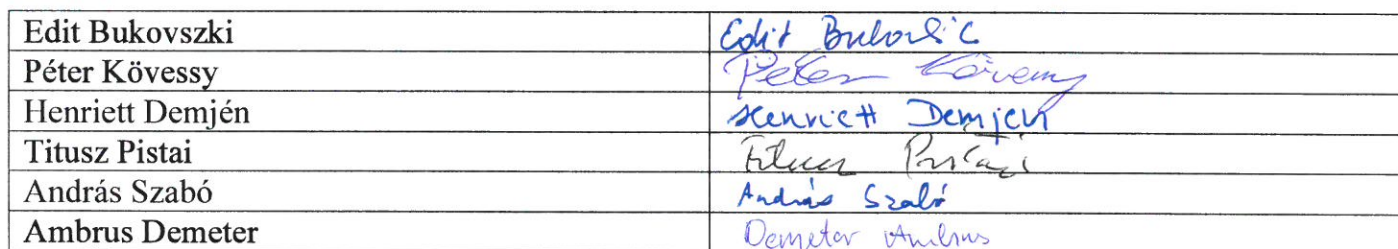 Edit Bukovszki Edit Bukovszki
Péter Kövessy Péter Kövessy
Henriett Demjén Henriett Demjén
Titusz Pistai Titusz Pistai
András Szabó András Szabó
Ambrus Demeter Demeter Ambrus